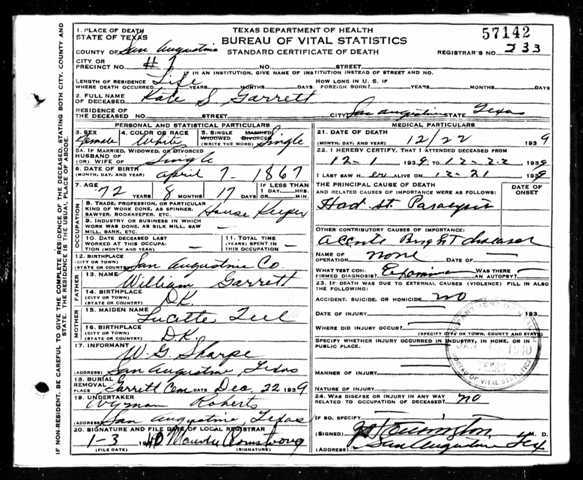 TEXAS DEPARTMENT OF HEALTH
BUREAU OF VITAL STATISTICS
STANDARD CERTIFICATE OF DEATH
57142
REGISTRAR'S NO. 233
1. PLACE OF DEATH
STATE OF TEXAS
COUNTY OF San Augustine
CITY OR
PRECINCT NO. #1
IF IN AN INSTITUTION, GIVE NAME OF INSTITUTION INSTEAD OF STREET AND NO.
LENGTH OF RESIDENCE
WHERE DEATH OCCURRED Life YEARS MONTHS DAYS
HOW LONG IN U. S. IF
FOREIGN BORN? YEARS MONTHS DAYS
2. FULL NAME
OF DECEASED Kate S Garrett
RESIDENCE OF
THE DECEASED STREET AND NO. CITY San Augustine STATE Texas
PERSONAL AND STATISTICAL PARTICULARS
3. SEX Female
4. COLOR OR RACE White
5. SINGLE MARRIED WIDOWED DIVORCED Single
5A. IF MARRIED, WIDOWED, OR DIVORCED
HUSBAND OF
(OR) WIFE OF Single
6. DATE OF BIRTH
(MONTH, DAY, AND YEAR) April 7 - 1867
7. AGE
YEARS MONTHS DAYS IF LESS THAN 1 DAY
72 8 17 HRS. MIN.
OCCUPATION
8. TRADE, PROFESSION, OR PARTICULAR
KIND OF WORK DONE, AS SPINNER,
SAWYER, BOOKKEEPER, ETC. House Keeper
9. INDUSTRY OR BUSINESS IN WHICH
WORK WAS DONE, AS SILK MILL, SAW
MILL, BANK, ETC.
10. DATE DECEASED LAST
WORKED AT THIS OCCUPATION
11. TOTAL YEARS SPENT IN
THE OCCUPATION
12. BIRTHPLACE
(CITY OR TOWN)
(STATE OR COUNTRY) San Augustine Co
FATHER
13. NAME William Garrett
14. BIRTHPLACE
(CITY OR TOWN)
(STATE OR COUNTRY) D.K.
MOTHER
15. MAIDEN NAME Lucette Teel
16. BIRTHPLACE
(CITY OR TOWN)
(STATE OR COUNTRY) D.K.
17. INFORMANT W. G. Sharpe
(ADDRESS) San Augustine Texas
18. BURIAL
REMOVAL Garrett Cem Dec 22 1939
19. UNDERTAKER Wyman Roberts
(ADDRESS) San Augustine Texas
20. SIGNATURE AND FILE DATE OF LOCAL REGISTRAR
1-3
(FILE DATE) (SIGNATURE)
MEDICAL PARTICULARS
21. DATE OF DEATH
(MONTH, DAY, AND YEAR) 12/22 1939
22. I HEREBY CERTIFY, THAT I ATTENDED DECEASED FROM
12 - 1 1939 TO 12-22 1939
I LAST SAW HER ALIVE ON 12-21 1939
THE PRINCIPAL CAUSE OF DEATH
AND RELATED CAUSES OF IMPORTANCE WERE AS FOLLOWS:
DATE OF
ONSET
Had st. Paralysis
OTHER CONTRIBUTORY CAUSES OF IMPORTANCE:
NAME OF
OPERATION none DATE OF
WHAT TEST CONFIRMED DIAGNOSIS WAS THERE
AN AUTOPSY?
23. IF DEATH WAS DUE TO EXTERNAL CAUSES (VIOLENCE) FILL IN ALSO
ACCIDENT, SUICIDE, OR HOMICIDE no
DATE OF INJURY
WHERE DID INJURY OCCUR?
(SPECIFY CITY OR TOWN, COUNTY AND STATE)
SPECIFY WHETHER INJURY OCCURRED IN INDUSTRY, IN HOME, OR IN
PUBLIC PLACE.
MANNER OF
INJURY
NATURE OF
INJURY
24. WAS DISEASE OR INJURY IN ANY WAY
RELATED TO OCCUPATION OF DECEASED? no
IF SO, SPECIFY
(SIGNED) M. D.
San Augustine Tex